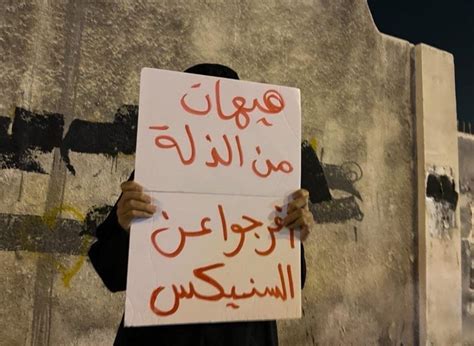 هيهات
من الذلة
أفرجوا عن
السنيكس